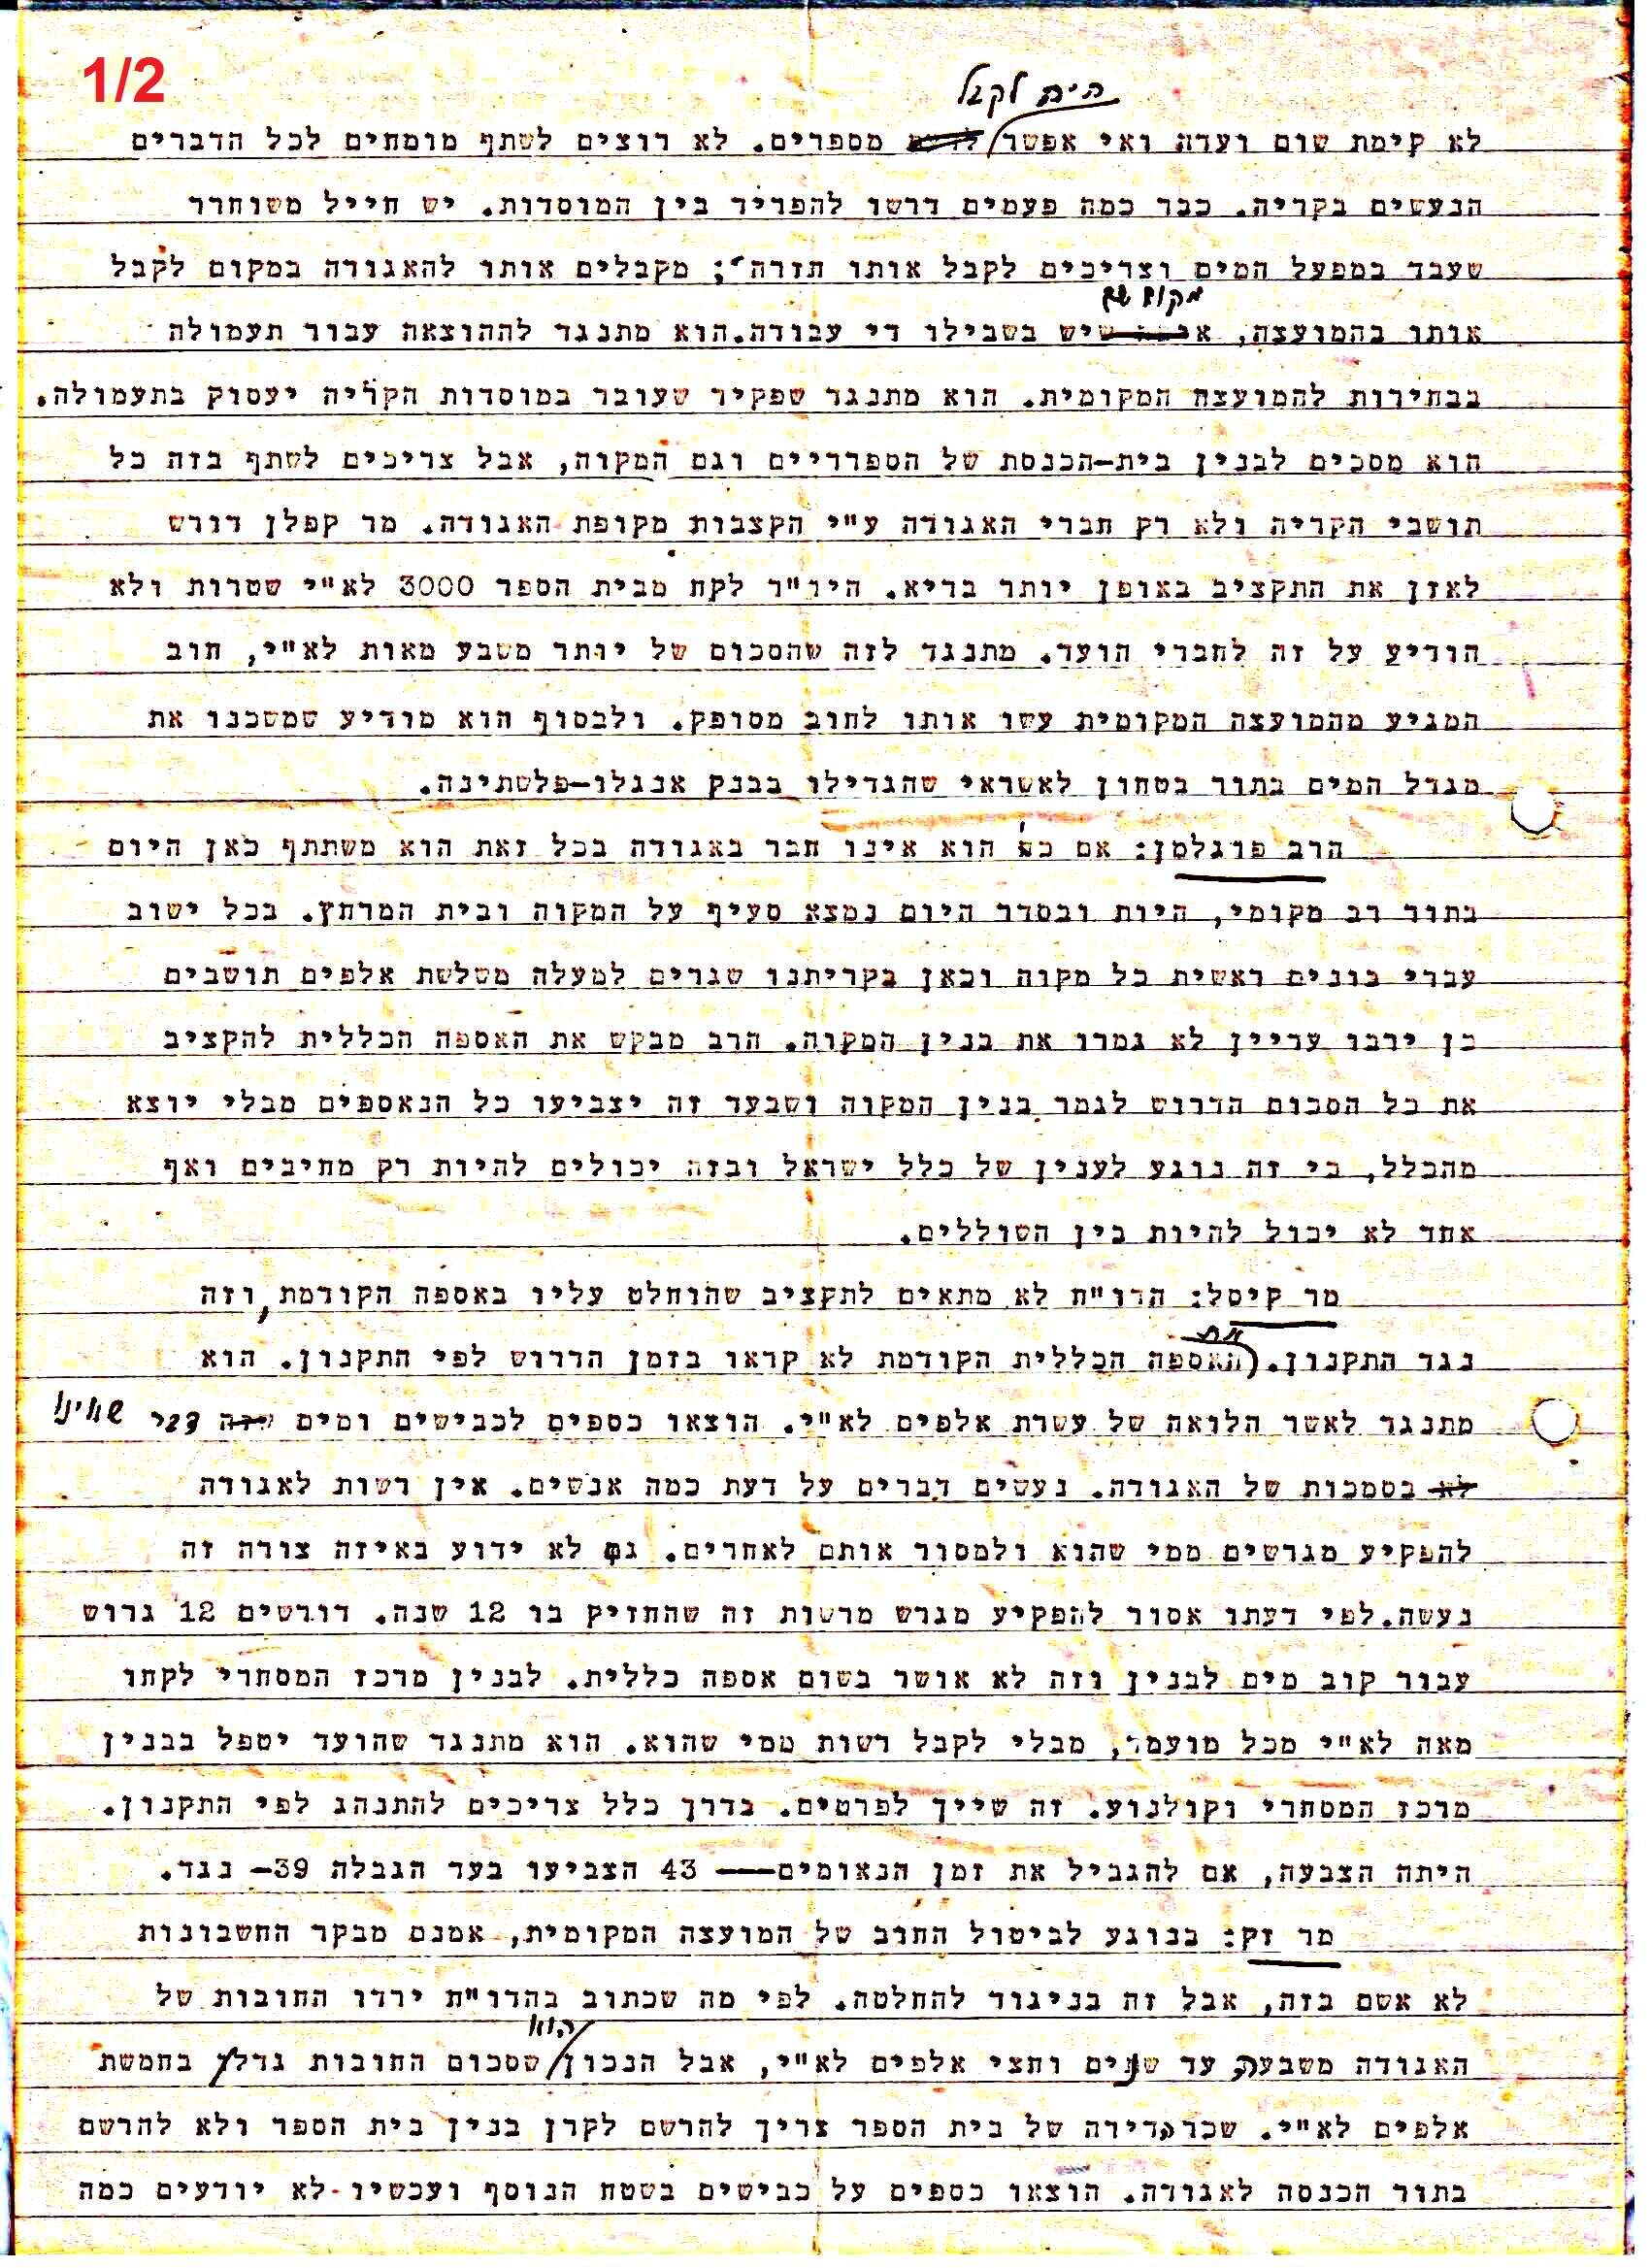 1/2
היה לקבל
לא קימת שום ועדה ואי אפשר מספרים. לא רוצים לשתף מומחים לכל הדברים
הנעשים בקריה. כבר כמה פעמים דרשו להפריד בין המוסדות. יש חייל משוחרר
שעבד במפעל המים וצריכים לקבל אותו חזרה; מקבלים אותו להאגודה במקום לקבל
מקום שם
אותו בהמועצה, שיש בשבילו די עבודה.הוא מתנגד לההוצאה עבור תעמולה
בבחירות להמועצה המקומית. הוא מתנגד שפקיד שעובד במוסדות הקריה יעסוק בתעמולה.
הוא מסכים לבנין בית-הכנסת של הספרדיים וגם המקוה, אבל צריכים לשתף בזה כל
תושבי הקריה ולא רק חברי האגודה ע"י הקצבות מקופת האגודה. מר קפלן דורש
לאזן את התקציב באופן יותר בריא. היו"ר לקח מבית הספר 3000 לא"י שטרות ולא
הודיע על זה לחברי הועד. מתנגד לזה שהסכום של יותר משבע מאות לא"י, חוב
המגיע מהמועצה המקומית עשו אותו לחוב מסופק. ולבסוף הוא מודיע שמשכנו את
מגדל המים בתור בטחון לאשראי שהגדילו בבנק אנגלו-פלשתינה.
הרב פוגלמן: אם כי הוא אינו חבר באגודה בכל זאת הוא משתתף כאן היום
בתור רב מקומי, היות ובסדר היום נמצא סעיף על המקוה ובית המרחץ. בכל ישוב
עברי בונים ראשית כל מקוה וכאן בקריתנו שגרים למעלה משלשת אלפים תושבים
כן ירבו עדיין לא גמרו את בנין המקוה. הרב מבקש את האספה הכללית להקציב
את כל הסכום הדרוש לגמר בנין המקוה ושבעד זה יצביעו כל הנאספים מבלי יוצא
מהכלל, כי זה נוגע לענין של כלל ישראל ובזה יכולים להיות רק מחיבים ואף
אחד לא יכול להיות בין השוללים.
מר קיסל: הדו"ח לא מתאים לתקציב שהוחלט עליו באספה הקודמת, וזה
את
נגד התקנון. האספה הכללית הקודמת לא קראו בזמן הדרוש לפי התקנון. הוא
מתנגד לאשר הלואה של עשרת אלפים לא"י. הוצאו כספים לכבישים ומים דבר שאינו
בסמכות של האגודה. נעשים דברים על דעת כמה אנשים. אין רשות לאגודה
להפקיע מגרשים ממי שהוא ולמסור אותם לאחרים. גם לא ידוע באיזה צורה זה
נעשה.לפי דעתו אסור להפקיע מגרש מרשות זה שהחזיק בו 12 שנה. דורשים 12 גרוש
עבור קוב מים לבנין וזה לא אושר בשום אספה כללית. לבנין מרכז המסחרי לקחו
מאה לא"י מכל מועמד, מבלי לקבל רשות ממי שהוא. הוא מתנגד שהועד יטפל בבנין
מרכז המסחרי וקולנוע. זה שייך לפרטים. בדרך כלל צריכים להתנהג לפי התקנון.
היתה הצבעה, אם להגביל את זמן הנאומים-- 43 הצביעו בעד הגבלה 39- נגד.
מר זק: בנוגע לביטול החוב של המועצה המקומית, אמנם מבקר החשבונות
לא אשם בזה, אבל זה בניגוד להחלטה. לפי מה שכתוב בהדו"ח ירדו החובות של
הוא
האגודה משבעה עד שנים וחצי אלפים לא"י, אבל הנכון שסכום החובות גדל בחמשת
אלפים לא"י. שכר הדירה של בית הספר צריך להרשם לקרן בנין בית הספר ולא להרשם
בתור הכנסה לאגודה. הוצאו כספים על כבישים בשטח הנוסף ועכשיו לא יודעים כמה